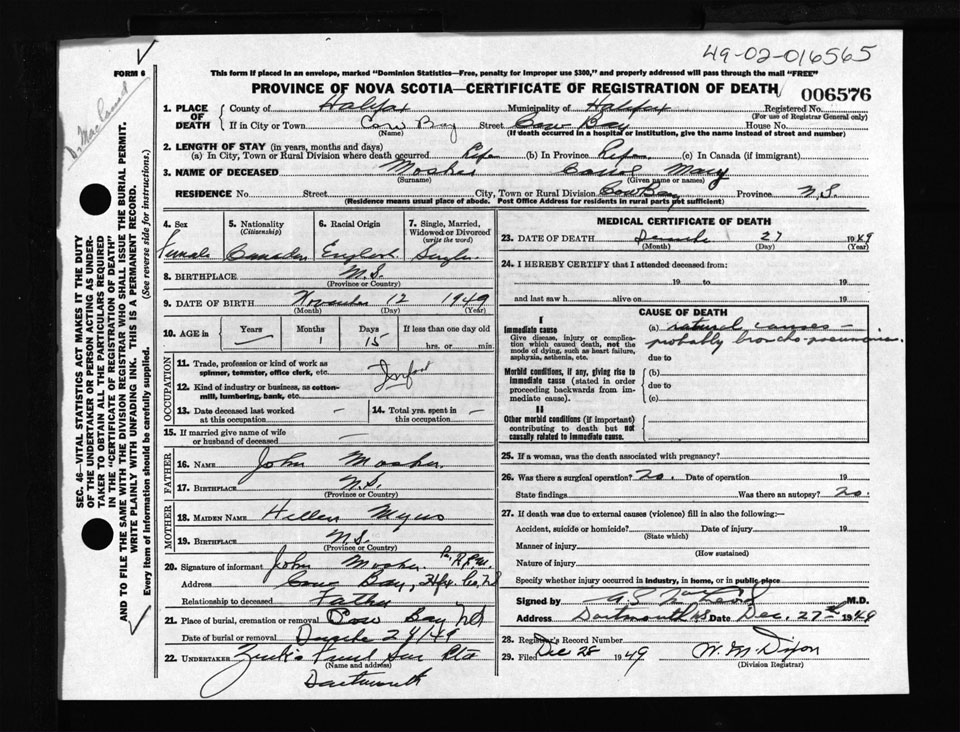 49-02-016565
FORM 6
This form if placed in an envelope, marked "Dominion Statistics—Free, penalty for improper use $300," and properly addressed will pass through the mail "FREE"
PROVINCE OF NOVA SCOTIA—CERTIFICATE OF REGISTRATION OF DEATH
006576
1. PLACE OF DEATH
County of Halifax Municipality of Halifax Registered No.
(For use of Registrar General only)
If in City or Town Cow Bay Street Cow Bay House No.
(Name) (If death occurred in a hospital or institution, give the name instead of street and number)
2. LENGTH OF STAY (in years, months and days)
(a) In City, Town or Rural Division where death occurred Life (b) In Province Life (c) In Canada (if immigrant)
3. NAME OF DECEASED Mosher Carol Mary
(Surname) (Given name or names)
RESIDENCE No. Street City, Town or Rural Division Cow Bay Province N.S.
(Residence means usual place of abode. Post Office Address for residents in rural parts not sufficient)
4. Sex
Female
5. Nationality
(Citizenship)
Canadian
6. Racial Origin
English
7. Single, Married,
Widowed or Divorced
(write the word)
Single
8. BIRTHPLACE N.S.
(Province or Country)
9. DATE OF BIRTH November 12 1949
(Month) (Day) (Year)
10. AGE in
Years —
Months 1
Days 15
If less than one day old
hrs. or min.
OCCUPATION
11. Trade, profession or kind of work as
spinner, teamster, office clerk, etc.
Infant
12. Kind of industry or business, as cotton-
mill, lumbering, bank, etc.
13. Date deceased last worked
at this occupation —
14. Total yrs. spent in
this occupation —
15. If married give name of wife
or husband of deceased —
FATHER
16. NAME John Mosher
17. BIRTHPLACE N.S.
(Province or Country)
MOTHER
18. MAIDEN NAME Hellen Myers
19. BIRTHPLACE N.S.
(Province or Country)
20. Signature of informant John Mosher
Address Cow Bay, Hfx. Co., N.S
Relationship to deceased Father
21. Place of burial, cremation or removal Cow Bay NS
Date of burial or removal 28/49
22. UNDERTAKER Zink's
(Name and address)
Dartmouth
MEDICAL CERTIFICATE OF DEATH
23. DATE OF DEATH December 27 1949
(Month) (Day) (Year)
24. I HEREBY CERTIFY that I attended deceased from:
19 to 19
and last saw h alive on 19
CAUSE OF DEATH
I
Immediate cause
Give disease, injury or complica-
tion which caused death, not the
mode of dying, such as heart failure,
asphyxia, asthenia, etc.
(a) natural causes —
probably broncho-pneumonia.
due to
Morbid conditions, if any, giving rise to
immediate cause (stated in order
proceeding backwards from im-
mediate cause).
(b)
due to
(c)
II
Other morbid conditions (if important)
contributing to death but not
causally related to immediate cause.
25. If a woman, was the death associated with pregnancy?
26. Was there a surgical operation? no. Date of operation 19
State findings Was there an autopsy? no.
27. If death was due to external causes (violence) fill in also the following:—
Accident, suicide or homicide? Date of injury 19
(State which)
Manner of injury
(How sustained)
Nature of injury
Specify whether injury occurred in industry, in home, or in public place
Signed by M.D.
Address Dartmouth NS Date Dec. 27th 1949
28. Registrar's Record Number
29. Filed Dec 28 1949 W. M. Dixon
(Division Registrar)
SEC. 46—VITAL STATISTICS ACT MAKES IT THE DUTY
OF THE UNDERTAKER OR PERSON ACTING AS UNDER-
TAKER TO OBTAIN ALL THE PARTICULARS REQUIRED
IN THE "CERTIFICATE OF REGISTRATION OF DEATH"
AND TO FILE THE SAME WITH THE DIVISION REGISTRAR WHO SHALL ISSUE THE BURIAL PERMIT.
WRITE PLAINLY WITH UNFADING INK. THIS IS A PERMANENT RECORD.
Every item of information should be carefully supplied. (See reverse side for instructions.)